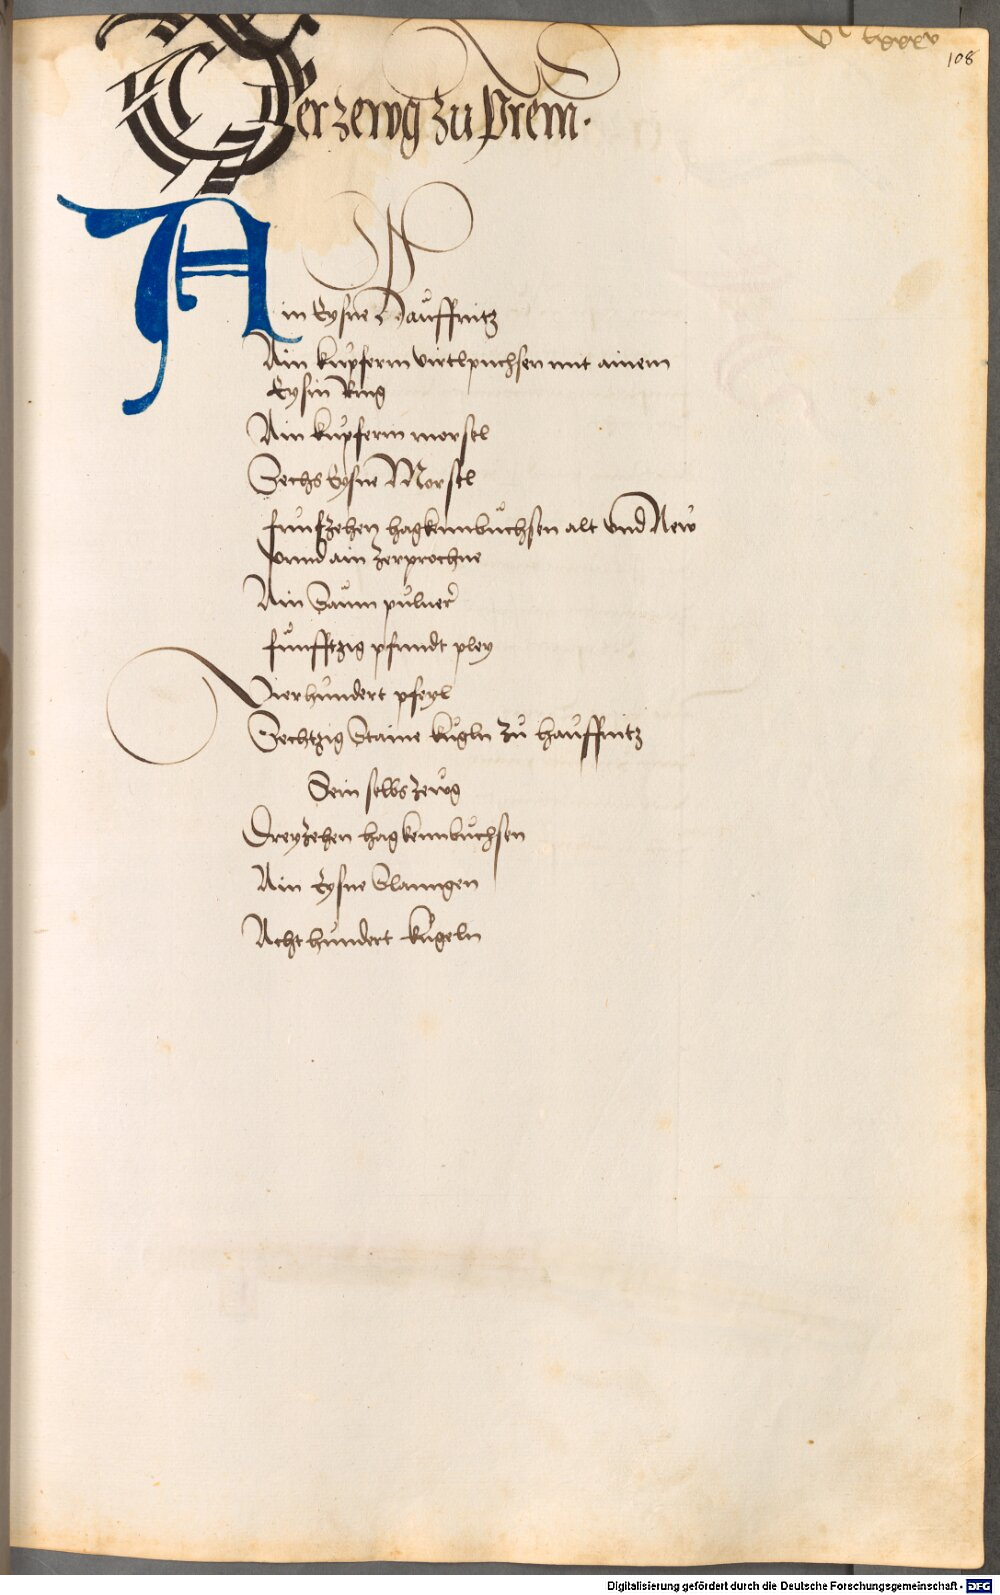 lxxxv
108
Der zewg zu Prem.
Ain Eysne Hauffnitz
Ain kupferin virtlpuchsen mit ainem
Eysin Ring
Ain kupferin morsel
Sechs Eysne Morsel
funfzehen hagkennbuchsen alt vnd New
vnnd ain zerprochne
Ain Saum puluer
funfftzig pfundt pley
Vierhundert pfeyl
Sechtzig Staine kugln zu hauffnitz
Sein selbs zewg
Dreyzehen hagkennbuchsen
Ain Eysne Slanngen
Acht hundert kugeln
Digitalisierung gefördert durch die Deutsche Forschungsgemeinschaft - DFG